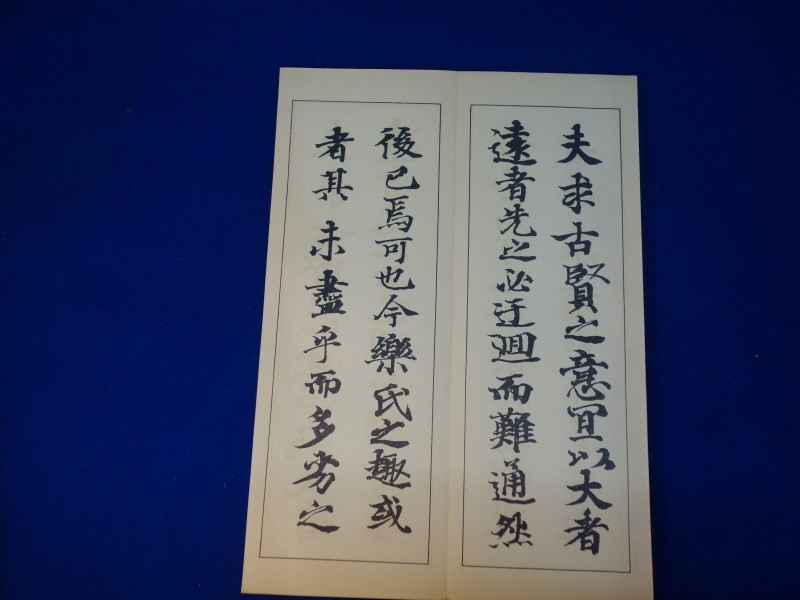 夫求古賢之意宜以大者
遠者先之必迂迴而難通然
後已焉可也今樂氏之趣或
者其未盡乎而多劣之